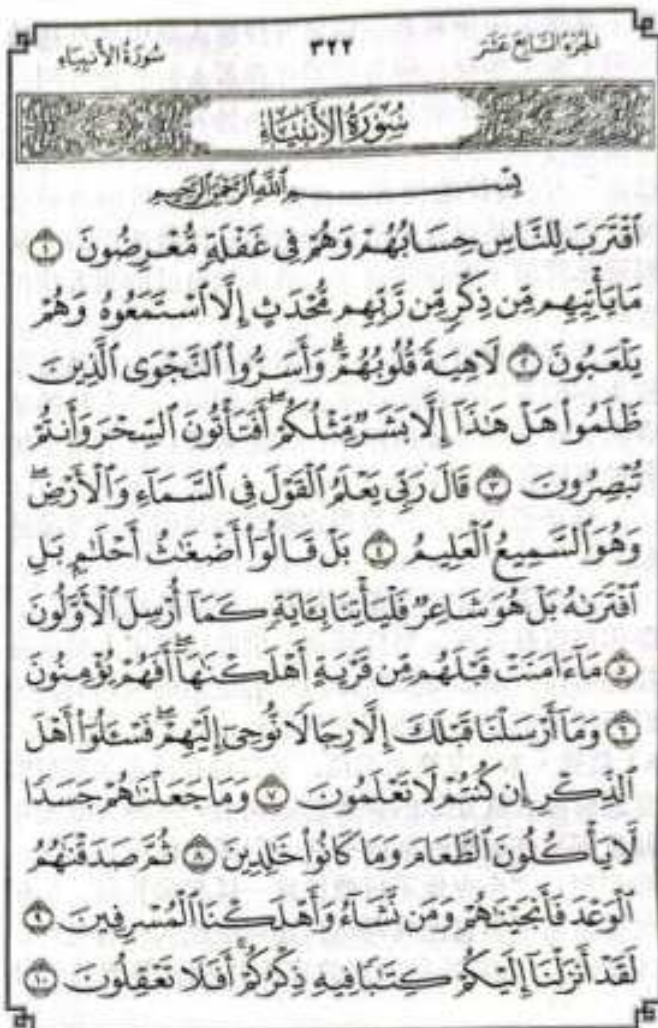 الجزء السابع عشر ٣٢٢ سورة الأنبياء
سُورَةُ الأَنْبِيَاءِ
بِسْمِ اللَّهِ الرَّحْمَٰنِ الرَّحِيمِ
ٱقْتَرَبَ لِلنَّاسِ حِسَابُهُمْ وَهُمْ فِى غَفْلَةٍ مُّعْرِضُونَ ١
مَا يَأْتِيهِم مِّن ذِكْرٍ مِّن رَّبِّهِم مُّحْدَثٍ إِلَّا ٱسْتَمَعُوهُ وَهُمْ
يَلْعَبُونَ ٢ لَاهِيَةً قُلُوبُهُمْ ۗ وَأَسَرُّوا۟ ٱلنَّجْوَى ٱلَّذِينَ
ظَلَمُوا۟ هَلْ هَٰذَآ إِلَّا بَشَرٌ مِّثْلُكُمْ ۖ أَفَتَأْتُونَ ٱلسِّحْرَ وَأَنتُمْ
تُبْصِرُونَ ٣ قَالَ رَبِّى يَعْلَمُ ٱلْقَوْلَ فِى ٱلسَّمَآءِ وَٱلْأَرْضِ ۖ
وَهُوَ ٱلسَّمِيعُ ٱلْعَلِيمُ ٤ بَلْ قَالُوٓا۟ أَضْغَٰثُ أَحْلَٰمٍۭ بَلِ
ٱفْتَرَىٰهُ بَلْ هُوَ شَاعِرٌ فَلْيَأْتِنَا بِـَٔايَةٍ كَمَآ أُرْسِلَ ٱلْأَوَّلُونَ
٥ مَآ ءَامَنَتْ قَبْلَهُم مِّن قَرْيَةٍ أَهْلَكْنَٰهَآ ۖ أَفَهُمْ يُؤْمِنُونَ
٦ وَمَآ أَرْسَلْنَا قَبْلَكَ إِلَّا رِجَالًا نُّوحِىٓ إِلَيْهِمْ ۖ فَسْـَٔلُوٓا۟ أَهْلَ
ٱلذِّكْرِ إِن كُنتُمْ لَا تَعْلَمُونَ ٧ وَمَا جَعَلْنَٰهُمْ جَسَدًا
لَّا يَأْكُلُونَ ٱلطَّعَامَ وَمَا كَانُوا۟ خَٰلِدِينَ ٨ ثُمَّ صَدَقْنَٰهُمُ
ٱلْوَعْدَ فَأَنجَيْنَٰهُمْ وَمَن نَّشَآءُ وَأَهْلَكْنَا ٱلْمُسْرِفِينَ ٩
لَقَدْ أَنزَلْنَآ إِلَيْكُمْ كِتَٰبًا فِيهِ ذِكْرُكُمْ ۖ أَفَلَا تَعْقِلُونَ ١٠